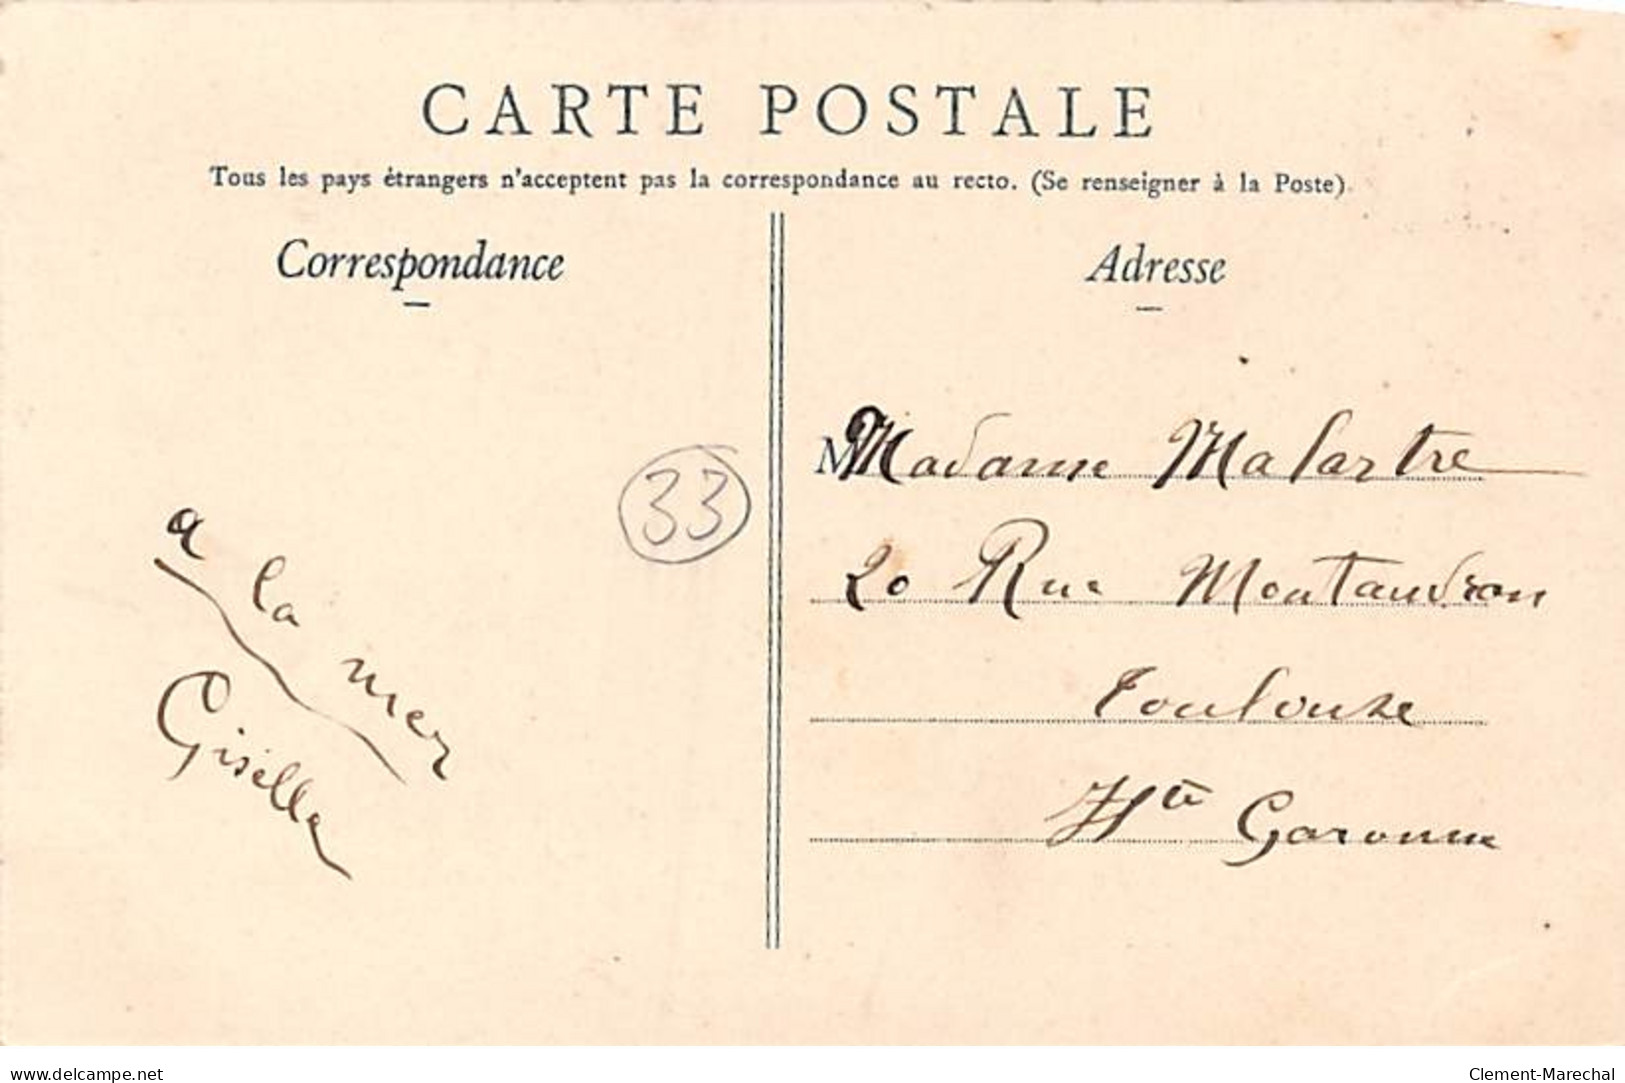 CARTE POSTALE
Tous les pays étrangers n'acceptent pas la correspondance au recto. (Se renseigner à la Poste)
Correspondance
Adresse
33
a la mer
Gisella
M
Madame Malartre
20 Rue Montaudran
Toulouse
Hte Garonne
www.delcampe.net
Clement-Marechal